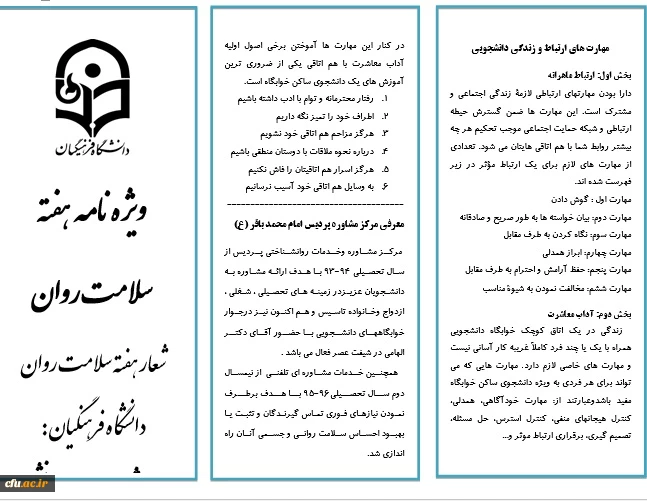 مهارت های ارتباط و زندگی دانشجویی
بخش اول: ارتباط ماهرانه
دارا بودن مهارتهای ارتباطی لازمۀ زندگی اجتماعی و
مشترک است. این مهارت ها ضمن گسترش حیطه
ارتباطی و شبکه حمایت اجتماعی موجب تحکیم هر چه
بیشتر روابط شما با هم اتاقی هایتان می شود. تعدادی
از مهارت های لازم برای یک ارتباط مؤثر در زیر
فهرست شده اند.
مهارت اول : گوش دادن
مهارت دوم: بیان خواسته ها به طور صریح و صادقانه
مهارت سوم: نگاه کردن به طرف مقابل
مهارت چهارم: ابراز همدلی
مهارت پنجم: حفظ آرامش و احترام به طرف مقابل
مهارت ششم: مخالفت نمودن به شیوۀ مناسب
بخش دوم: آداب معاشرت
زندگی در یک اتاق کوچک خوابگاه دانشجویی
همراه با یک یا چند فرد کاملاً غریبه کار آسانی نیست
و مهارت های خاصی لازم دارد. مهارت هایی که می
تواند برای هر فردی به ویژه دانشجوی ساکن خوابگاه
مفید باشدوعبارتند از: مهارت خودآگاهی، همدلی،
کنترل هیجانهای منفی، کنترل استرس، حل مسئله،
تصمیم گیری، برقراری ارتباط موثر و...
در کنار این مهارت ها آموختن برخی اصول اولیه
آداب معاشرت با هم اتاقی یکی از ضروری ترین
آموزش های یک دانشجوی ساکن خوابگاه است.
۱. رفتار محترمانه و توام با ادب داشته باشیم
۲. اطراف خود را تمیز نگه داریم
۳. هرگز مزاحم هم اتاقی خود نشویم
۴. درباره نحوه ملاقات با دوستان منطقی باشیم
۵. هرگز اسرار هم اتاقیتان را فاش نکنیم
۶. به وسایل هم اتاقی خود آسیب نرسانیم
معرفی مرکز مشاوره پردیس امام محمد باقر (ع)
مرکز مشاوره وخدمات روانشناختی پردیس از
سال تحصیلی ۹۴-۹۳ با هدف ارائه مشاوره به
دانشجویان عزیزدر زمینه های تحصیلی ، شغلی ،
ازدواج وخانواده تاسیس و هم اکنون نیز درجوار
خوابگاههای دانشجویی با حضور آقای دکتر
الهامی در شیفت عصر فعال می باشد .
همچنین خدمات مشاوره ای تلفنی از نیمسال
دوم سال تحصیلی ۹۶-۹۵ با هدف برطرف
نمودن نیازهای فوری تماس گیرندگان و تثبت یا
بهبود احساس سلامت روانی و جسمی آنان راه
اندازی شد.
دانشگاه فرهنگیان
ویژه نامه هفته
سلامت روان
شعار هفته سلامت روان
دانشگاه فرهنگیان:
cfu.ac.ir